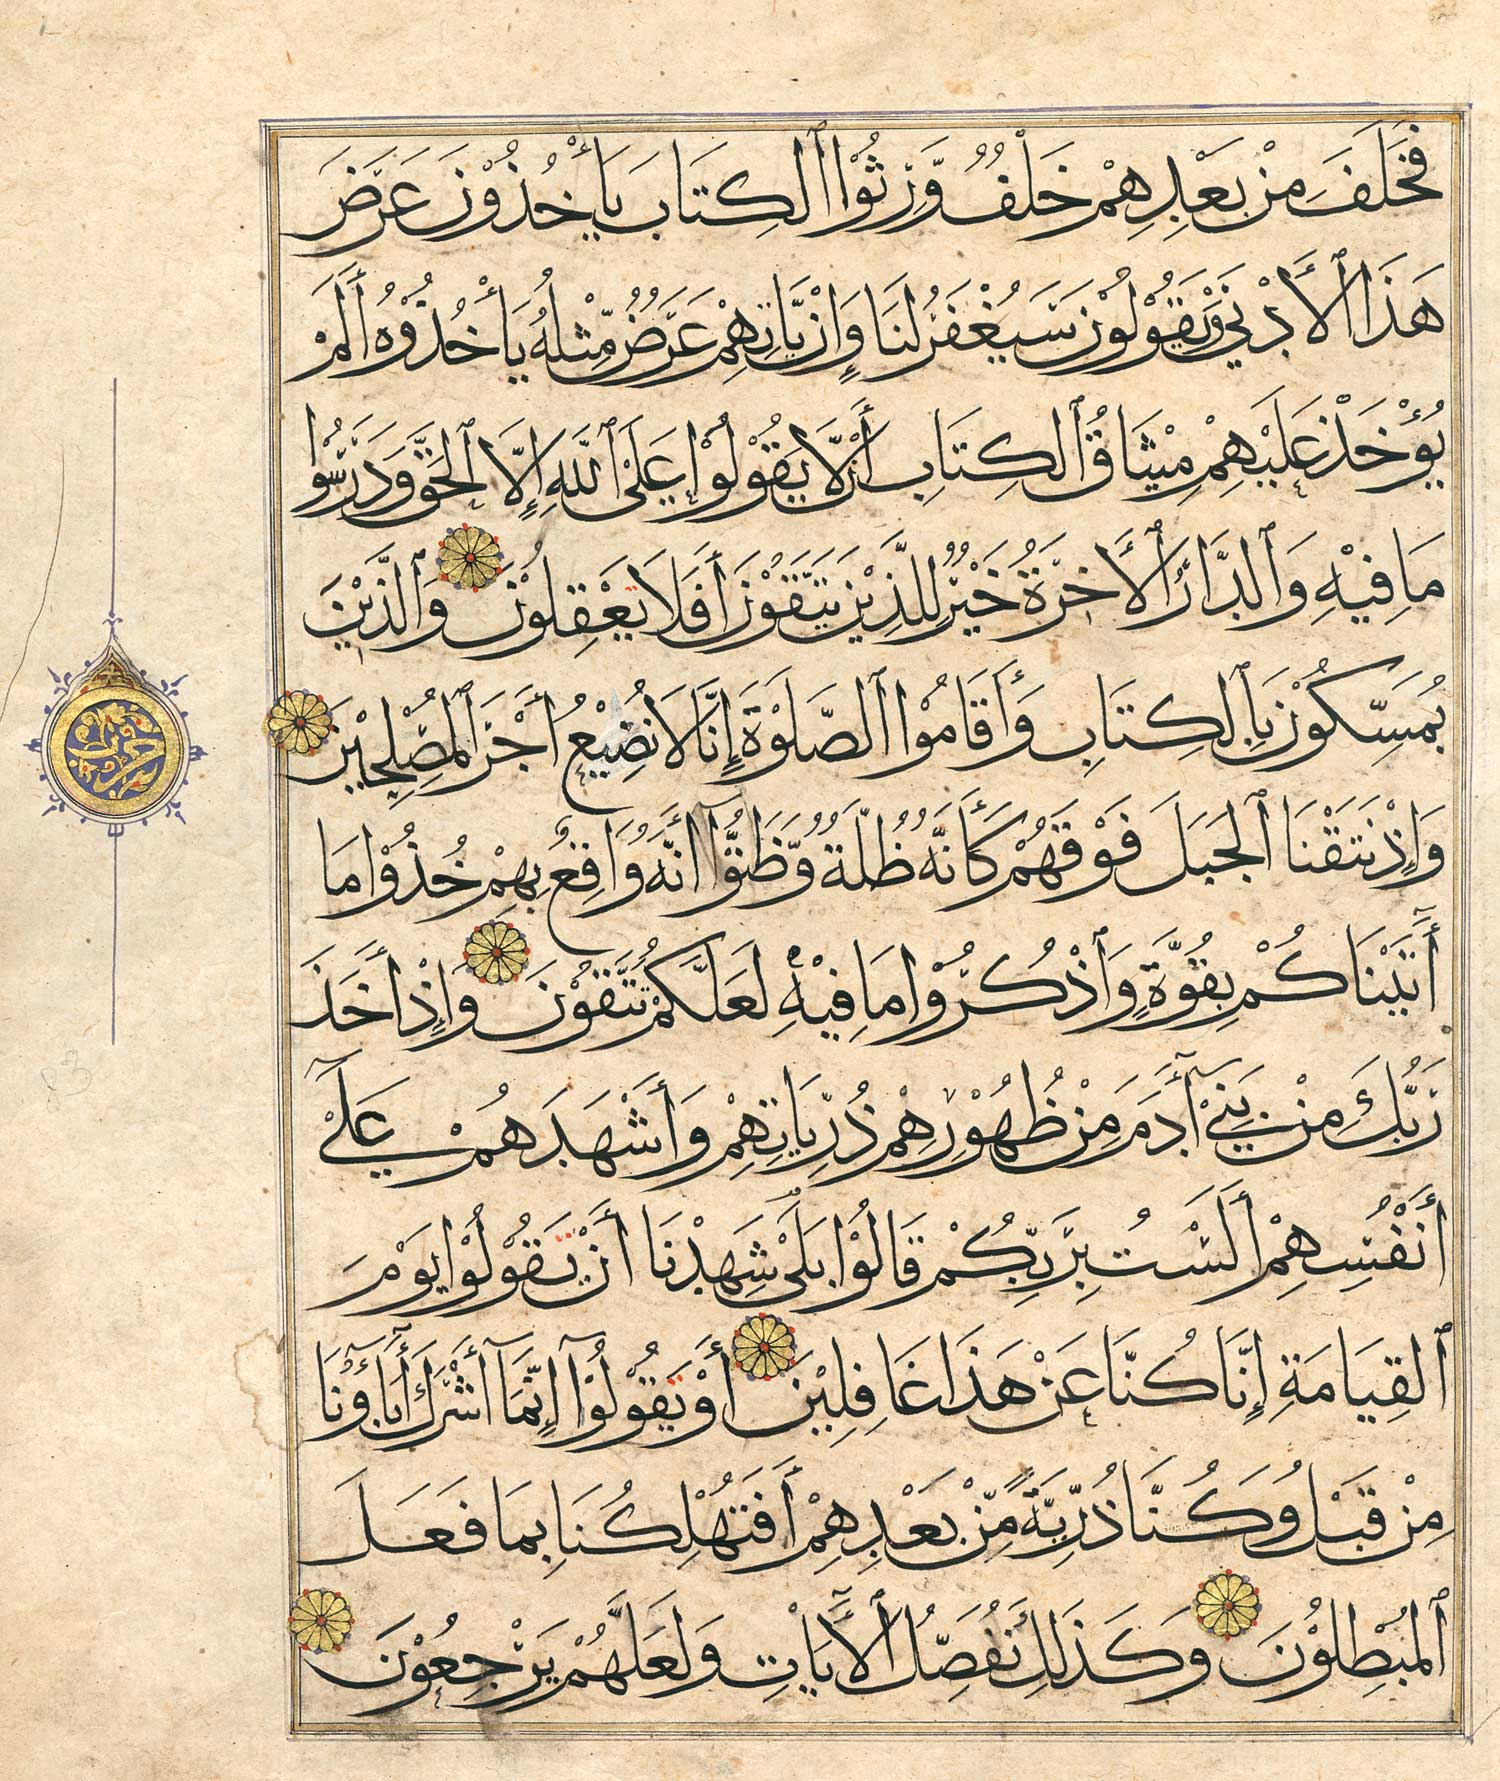 فَخَلَفَ مِنْ بَعْدِهِمْ خَلْفٌ وَّرِثُوْا ٱلكِتَابَ يَأْخُذُوْنَ عَرَضَ
هَذَا ٱلأَدْنٰى وَيَقُوْلُوْنَ سَيُغْفَرُ لَنَا وَاِنْ يَّاتِهِمْ عَرَضٌ مِّثْلُهُ يَأْخُذُوْهُ أَلَمْ
يُؤْخَذْ عَلَيْهِمْ مِيْثَاقُ ٱلكِتَابِ أَنْ لَّا يَقُوْلُوْا عَلَى ٱللَّهِ اِلَّا ٱلحَقَّ وَدَرَسُوْا
مَا فِيْهِ وَٱلدَّارُ ٱلأَخِرَةُ خَيْرٌ لِلَّذِيْنَ يَتَّقُوْنَ أَفَلَا يَعْقِلُوْنَ وَٱلَّذِيْنَ
يُمَسِّكُوْنَ بِٱلكِتَابِ وَأَقَامُوْا ٱلصَّلَوٰةَ إِنَّا لَا نُضِيْعُ أَجْرَ ٱلمُصْلِحِيْنَ
وَإِذْ نَتَقْنَا ٱلجَبَلَ فَوْقَهُمْ كَأَنَّهُ ظُلَّةٌ وَّظَنُّوْآ اَنَّهُ وَاقِعٌ بِهِمْ خُذُوْا مَا
أٓتَيْنَاكُمْ بِقُوَّةٍ وَٱذْكُرُوْا مَا فِيْهِ لَعَلَّكُمْ تَتَّقُوْنَ وَإِذْ أَخَذَ
رَبُّكَ مِنْ بَنِيْ أٓدَمَ مِنْ ظُهُوْرِهِمْ ذُرِّيَاتِهِمْ وَأَشْهَدَهُمْ عَلَىٓ
أَنْفُسِهِمْ أَلَسْتُ بِرَبِّكُمْ قَالُوْا بَلَى شَهِدْنَا أَنْ تَقُوْلُوْا يَوْمَ
ٱلقِيَامَةِ إِنَّا كُنَّا عَنْ هَذَا غَافِلِيْنَ أَوْ تَقُوْلُوْآ إِنَّمَآ أَشْرَكَ أٓبَآؤُنَا
مِنْ قَبْلُ وَكُنَّا ذُرِّيَّةً مِّنْ بَعْدِهِمْ أَفَتُهْلِكُنَا بِمَا فَعَلَ
ٱلمُبْطِلُوْنَ وَكَذَلِكَ نُفَصِّلُ ٱلأٓيَاتِ وَلَعَلَّهُمْ يَرْجِعُوْنَ